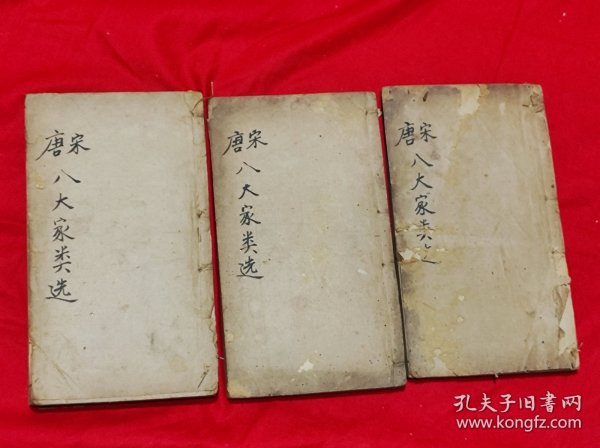 唐宋八大家类选
唐宋八大家类选
唐宋八大家类
孔夫子旧书网
www.kongfz.com